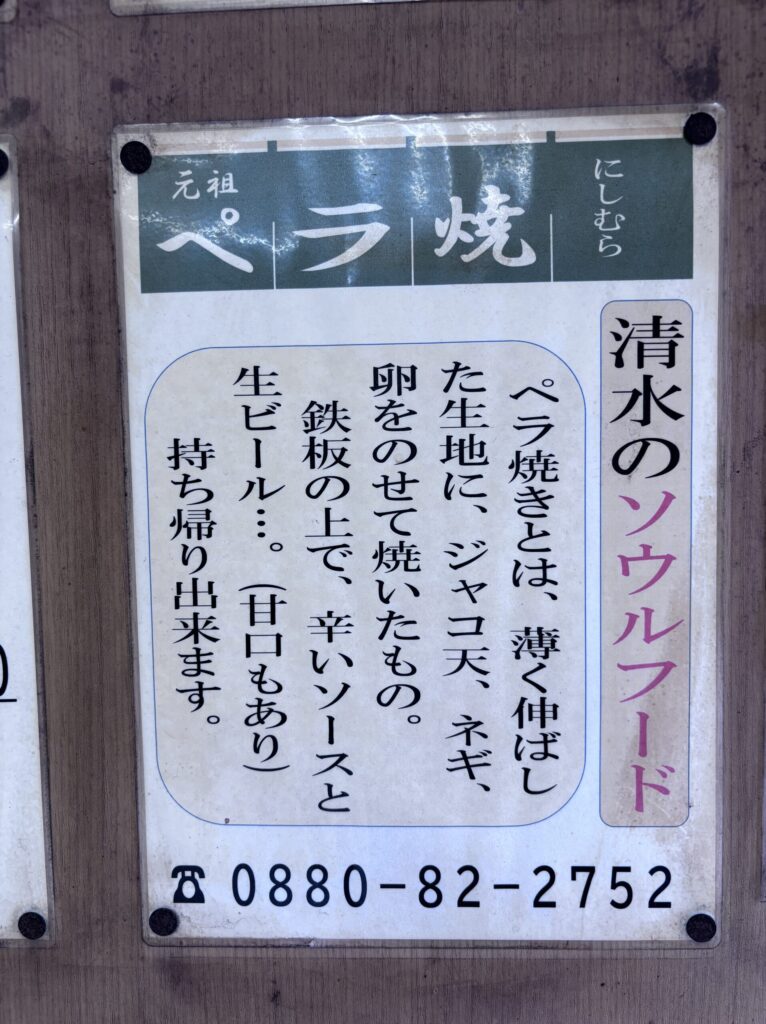 元祖
ペラ焼
にしむら
清水のソウルフード
ペラ焼きとは、薄く伸ばし
た生地に、ジャコ天、ネギ、
卵をのせて焼いたもの。
鉄板の上で、辛いソースと
生ビール…。（甘口もあり）
持ち帰り出来ます。
☎0880-82-2752
0